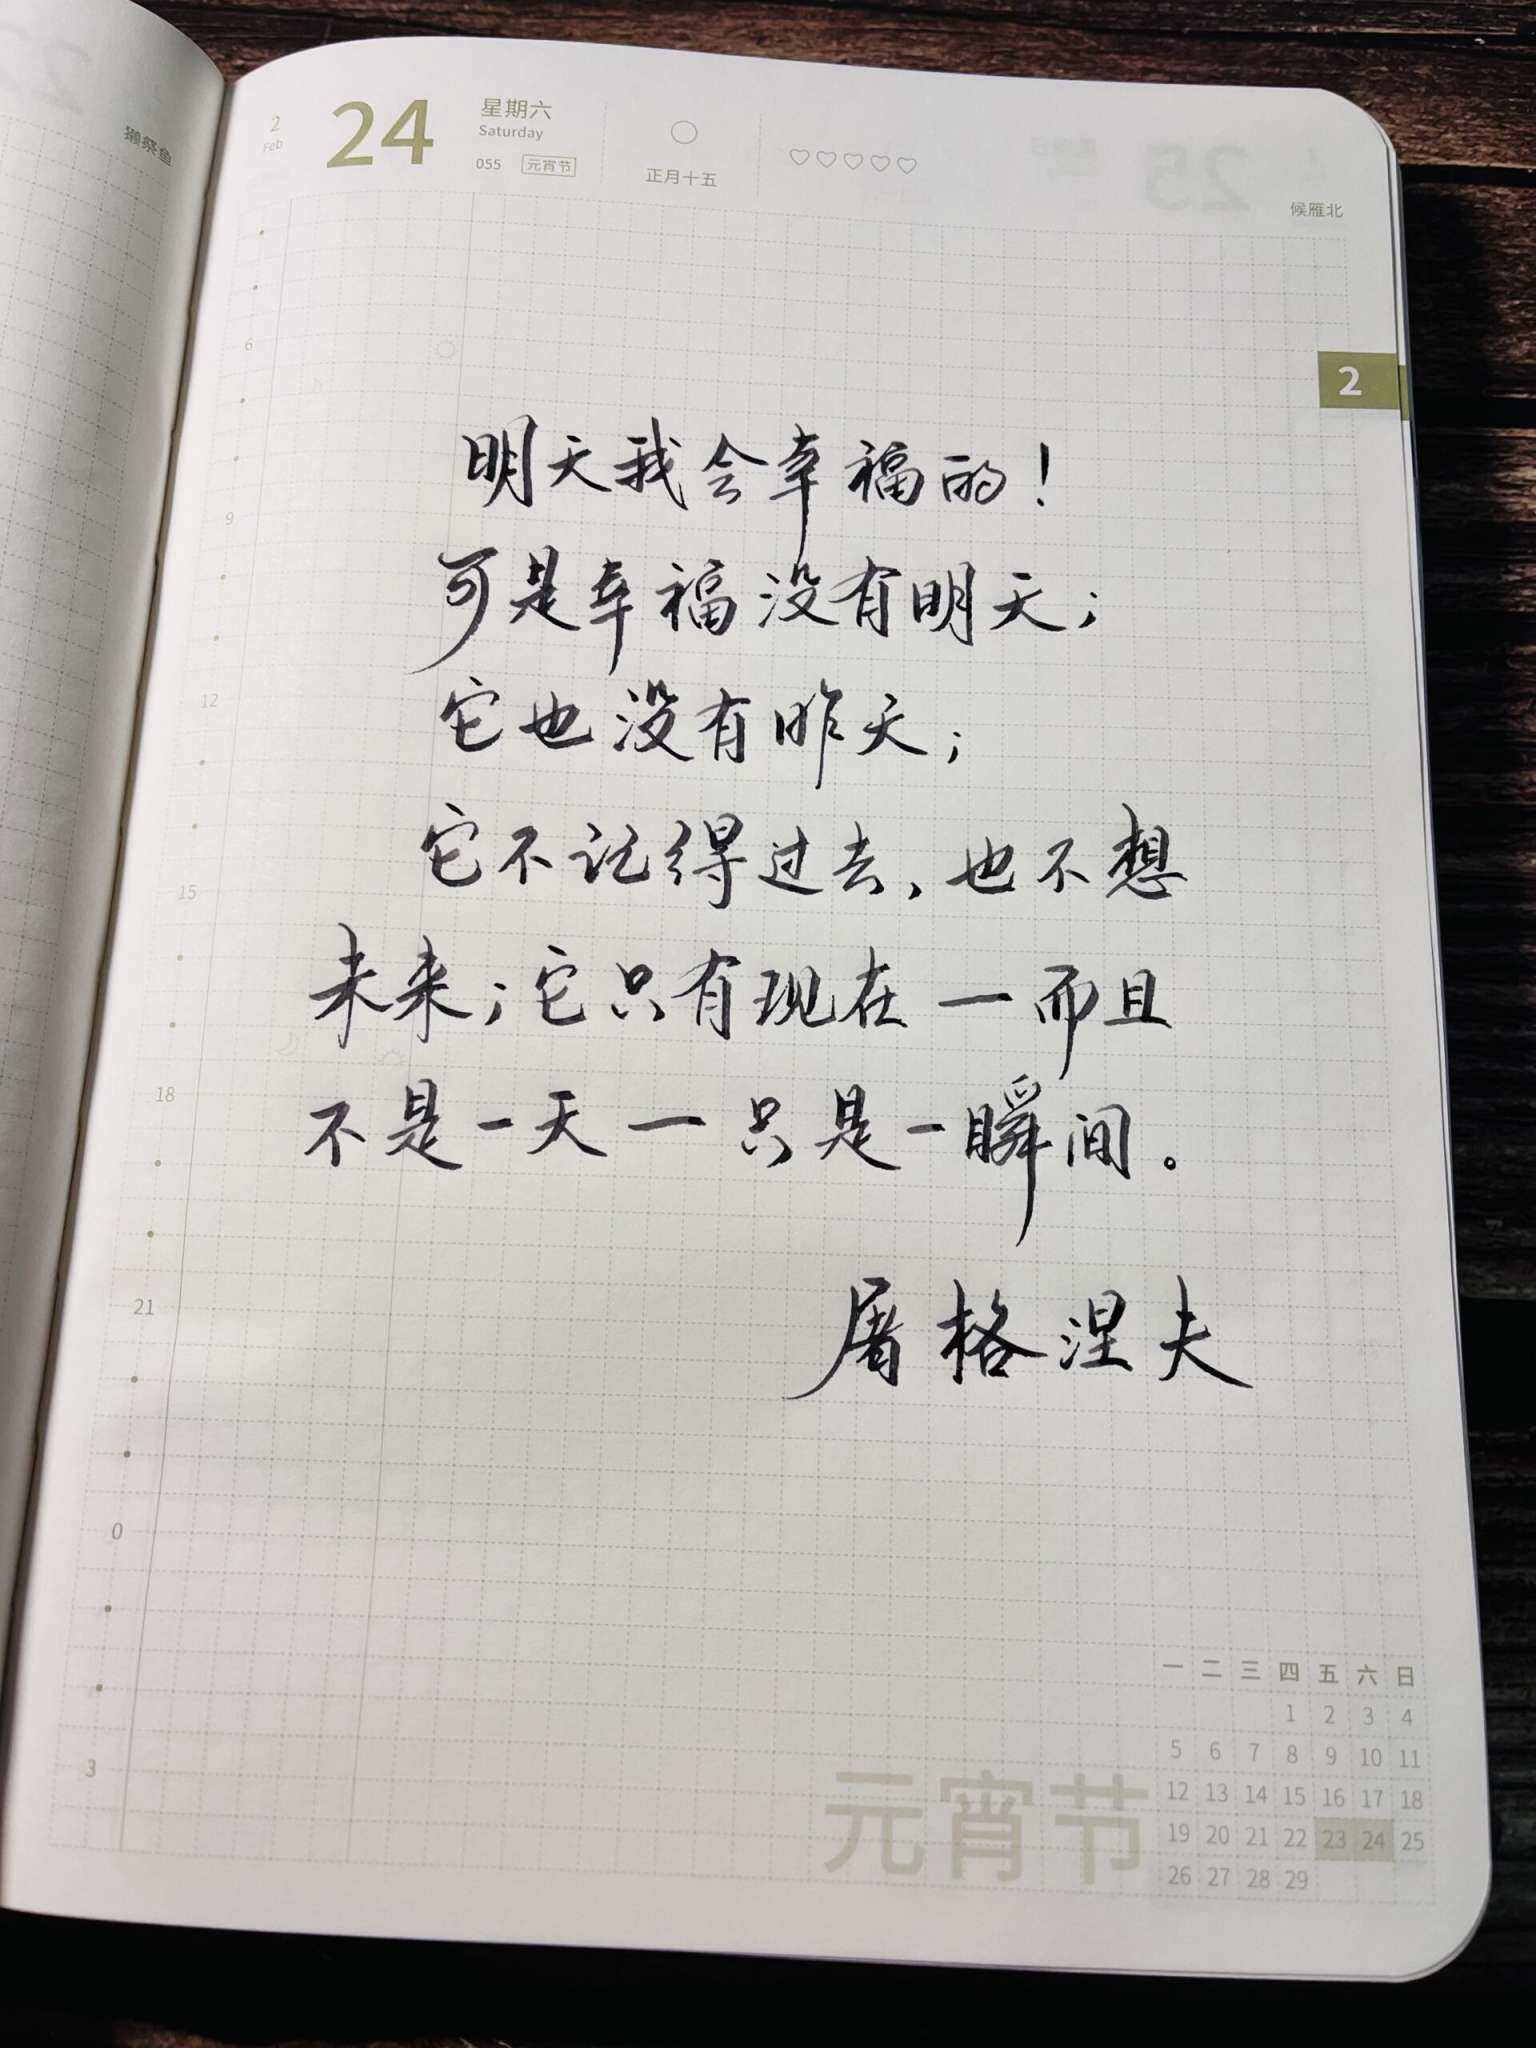 獭祭鱼
2
Feb
24
星期六
Saturday
055 元宵节
正月十五
候雁北
2
6
9
12
15
18
21
0
3
明天我会幸福的！
可是幸福没有明天；
它也没有昨天；
它不记得过去，也不想
未来；它只有现在一而且
不是一天一只是一瞬间。
屠格涅夫
元宵节
一 二 三 四 五 六 日
1 2 3 4
5 6 7 8 9 10 11
12 13 14 15 16 17 18
19 20 21 22 23 24 25
26 27 28 29